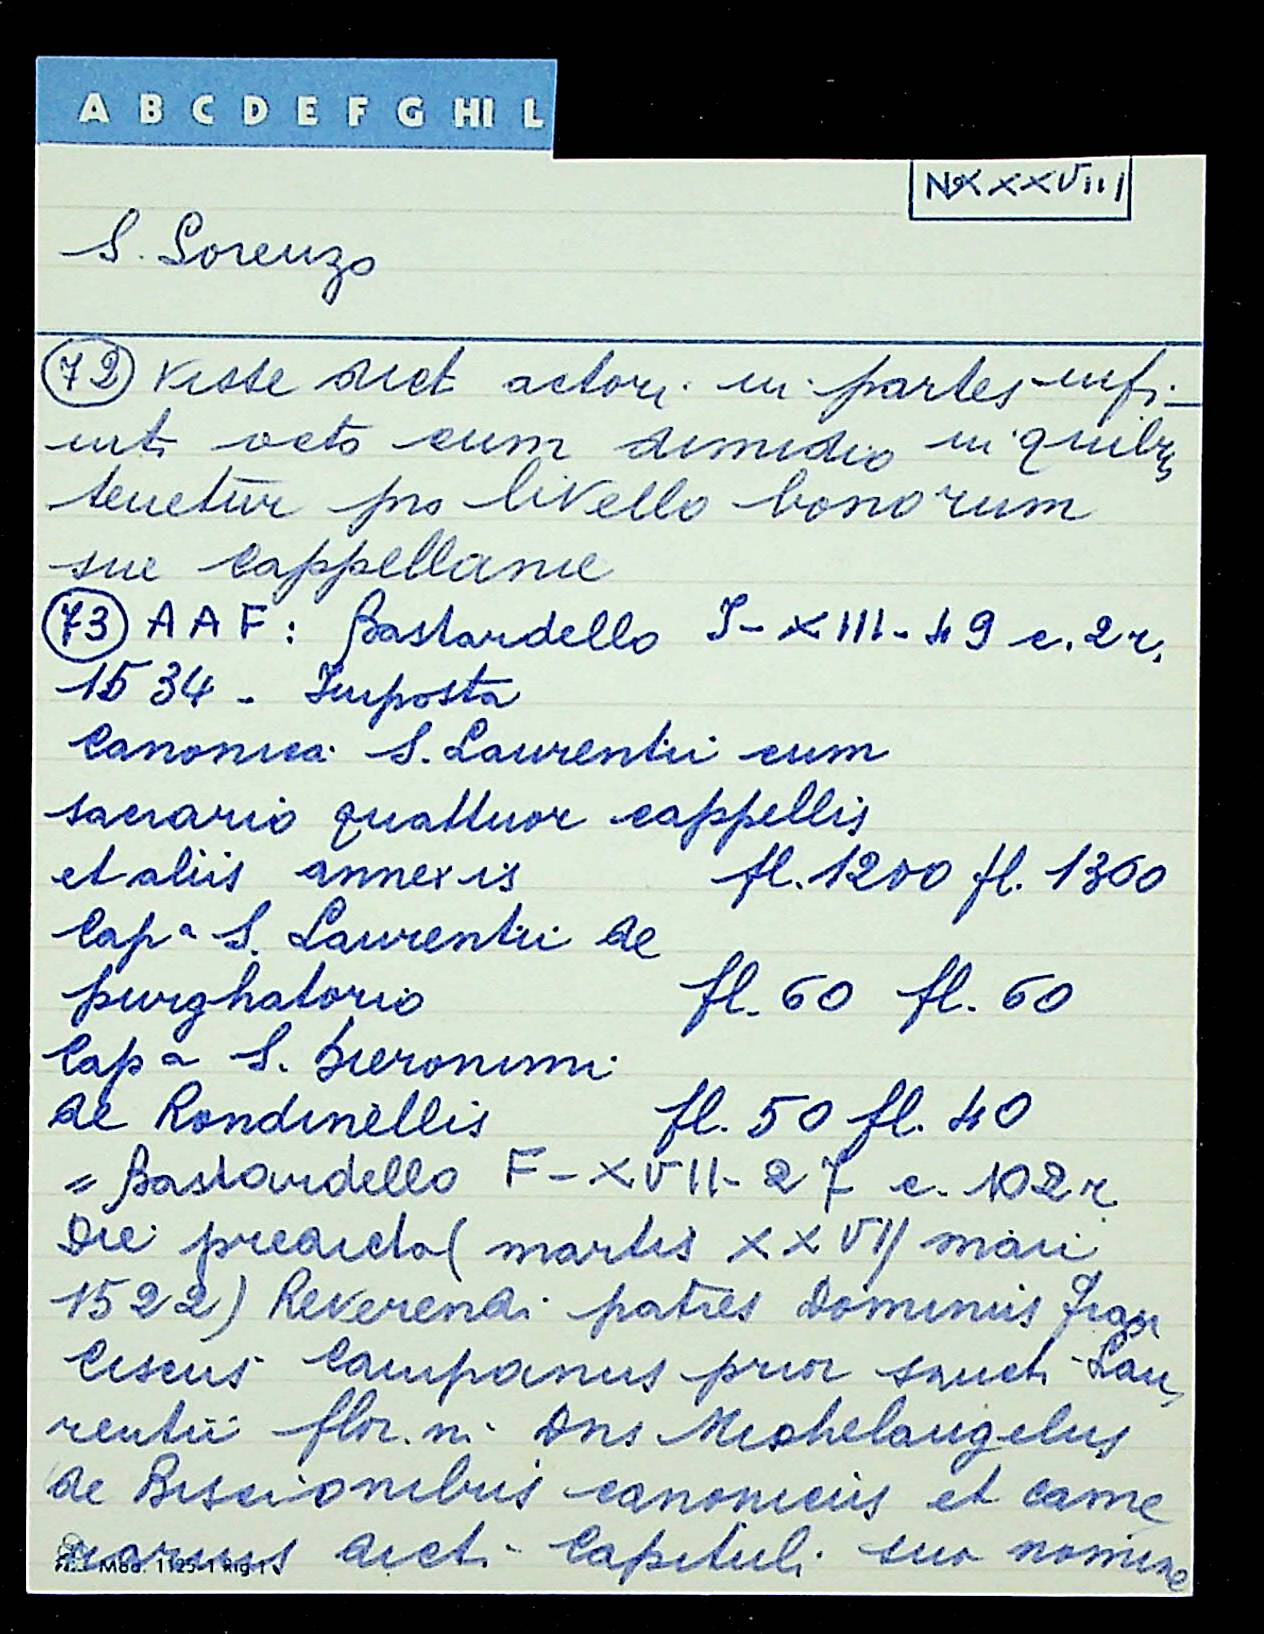 A B C D E F G HI L
N° XXXVIII
S. Lorenzo
72 dict actori in partes infi-
octo cum dimidio in quib;
tenetur pro livello bonorum
sue cappellanie
73 AAF: Bastardello I-XIII-49 c. 2r.
1534 - Imposta
Canonica S. Laurentii cum
sacrario quattuor cappellis
et aliis annexis fl. 1200 fl. 1300
Capª S. Laurentii de
purghatorio fl. 60 fl. 60
Capª S. Hieronimi
de Rondinellis fl. 50 fl. 40
= Bastardello F-XVII-27 c. 102r
Die predicta (martis XXVII maii
1522) Reverendi patres Dominus Fran
ciscus Campanus prior sancti Lau,
rentii flor.ni Dns Michelangelus
de Biscionibus canonicus et came
rarius dicti Capituli suo nomine
Mod. 1125-1 Rig 1